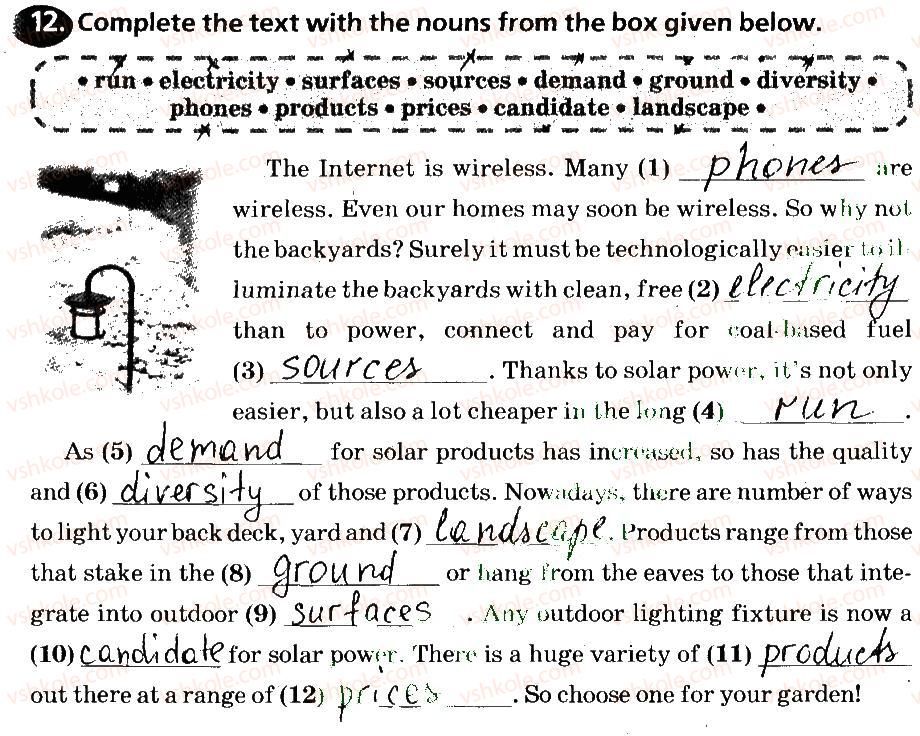 12. Complete the text with the nouns from the box given below.
• run • electricity • surfaces • sources • demand • ground • diversity •
phones • products • prices • candidate • landscape •
The Internet is wireless. Many (1) phones are
wireless. Even our homes may soon be wireless. So why not
the backyards? Surely it must be technologically easier to il-
luminate the backyards with clean, free (2) electricity
than to power, connect and pay for coal-based fuel
(3) sources. Thanks to solar power, it's not only
easier, but also a lot cheaper in the long (4) run.
As (5) demand for solar products has increased, so has the quality
and (6) diversity of those products. Nowadays, there are number of ways
to light your back deck, yard and (7) landscape. Products range from those
that stake in the (8) ground or hang from the eaves to those that inte-
grate into outdoor (9) surfaces. Any outdoor lighting fixture is now a
(10) candidate for solar power. There is a huge variety of (11) products
out there at a range of (12) prices. So choose one for your garden!